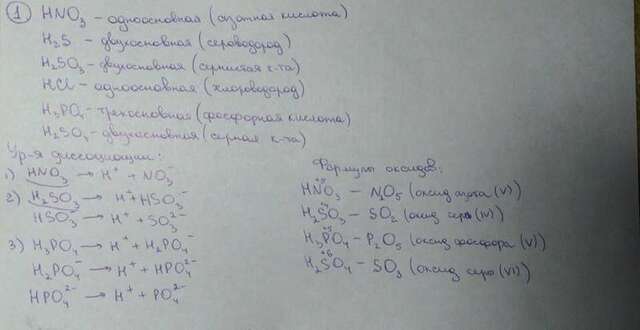 ① HNO₃ – одноосновная (азотная кислота)
H₂S – двухосновная (сероводород)
H₂SO₃ – двухосновная (сернистая к-та)
HCl – одноосновная (хлороводород)
H₃PO₄ – трехосновная (фосфорная кислота)
H₂SO₄ – двухосновная (серная к-та)
Ур-я диссоциации:
1) HNO₃ → H⁺ + NO₃⁻
2) H₂SO₃ → H⁺ + HSO₃⁻
HSO₃⁻ → H⁺ + SO₃²⁻
3) H₃PO₄ → H⁺ + H₂PO₄⁻
H₂PO₄⁻ → H⁺ + HPO₄²⁻
HPO₄²⁻ → H⁺ + PO₄³⁻
Формулы оксидов:
+5
HNO₃ – N₂O₅ (оксид азота (V))
+4
H₂SO₃ – SO₂ (оксид серы (IV))
+5
H₃PO₄ – P₂O₅ (оксид фосфора (V))
+6
H₂SO₄ – SO₃ (оксид серы (VI))